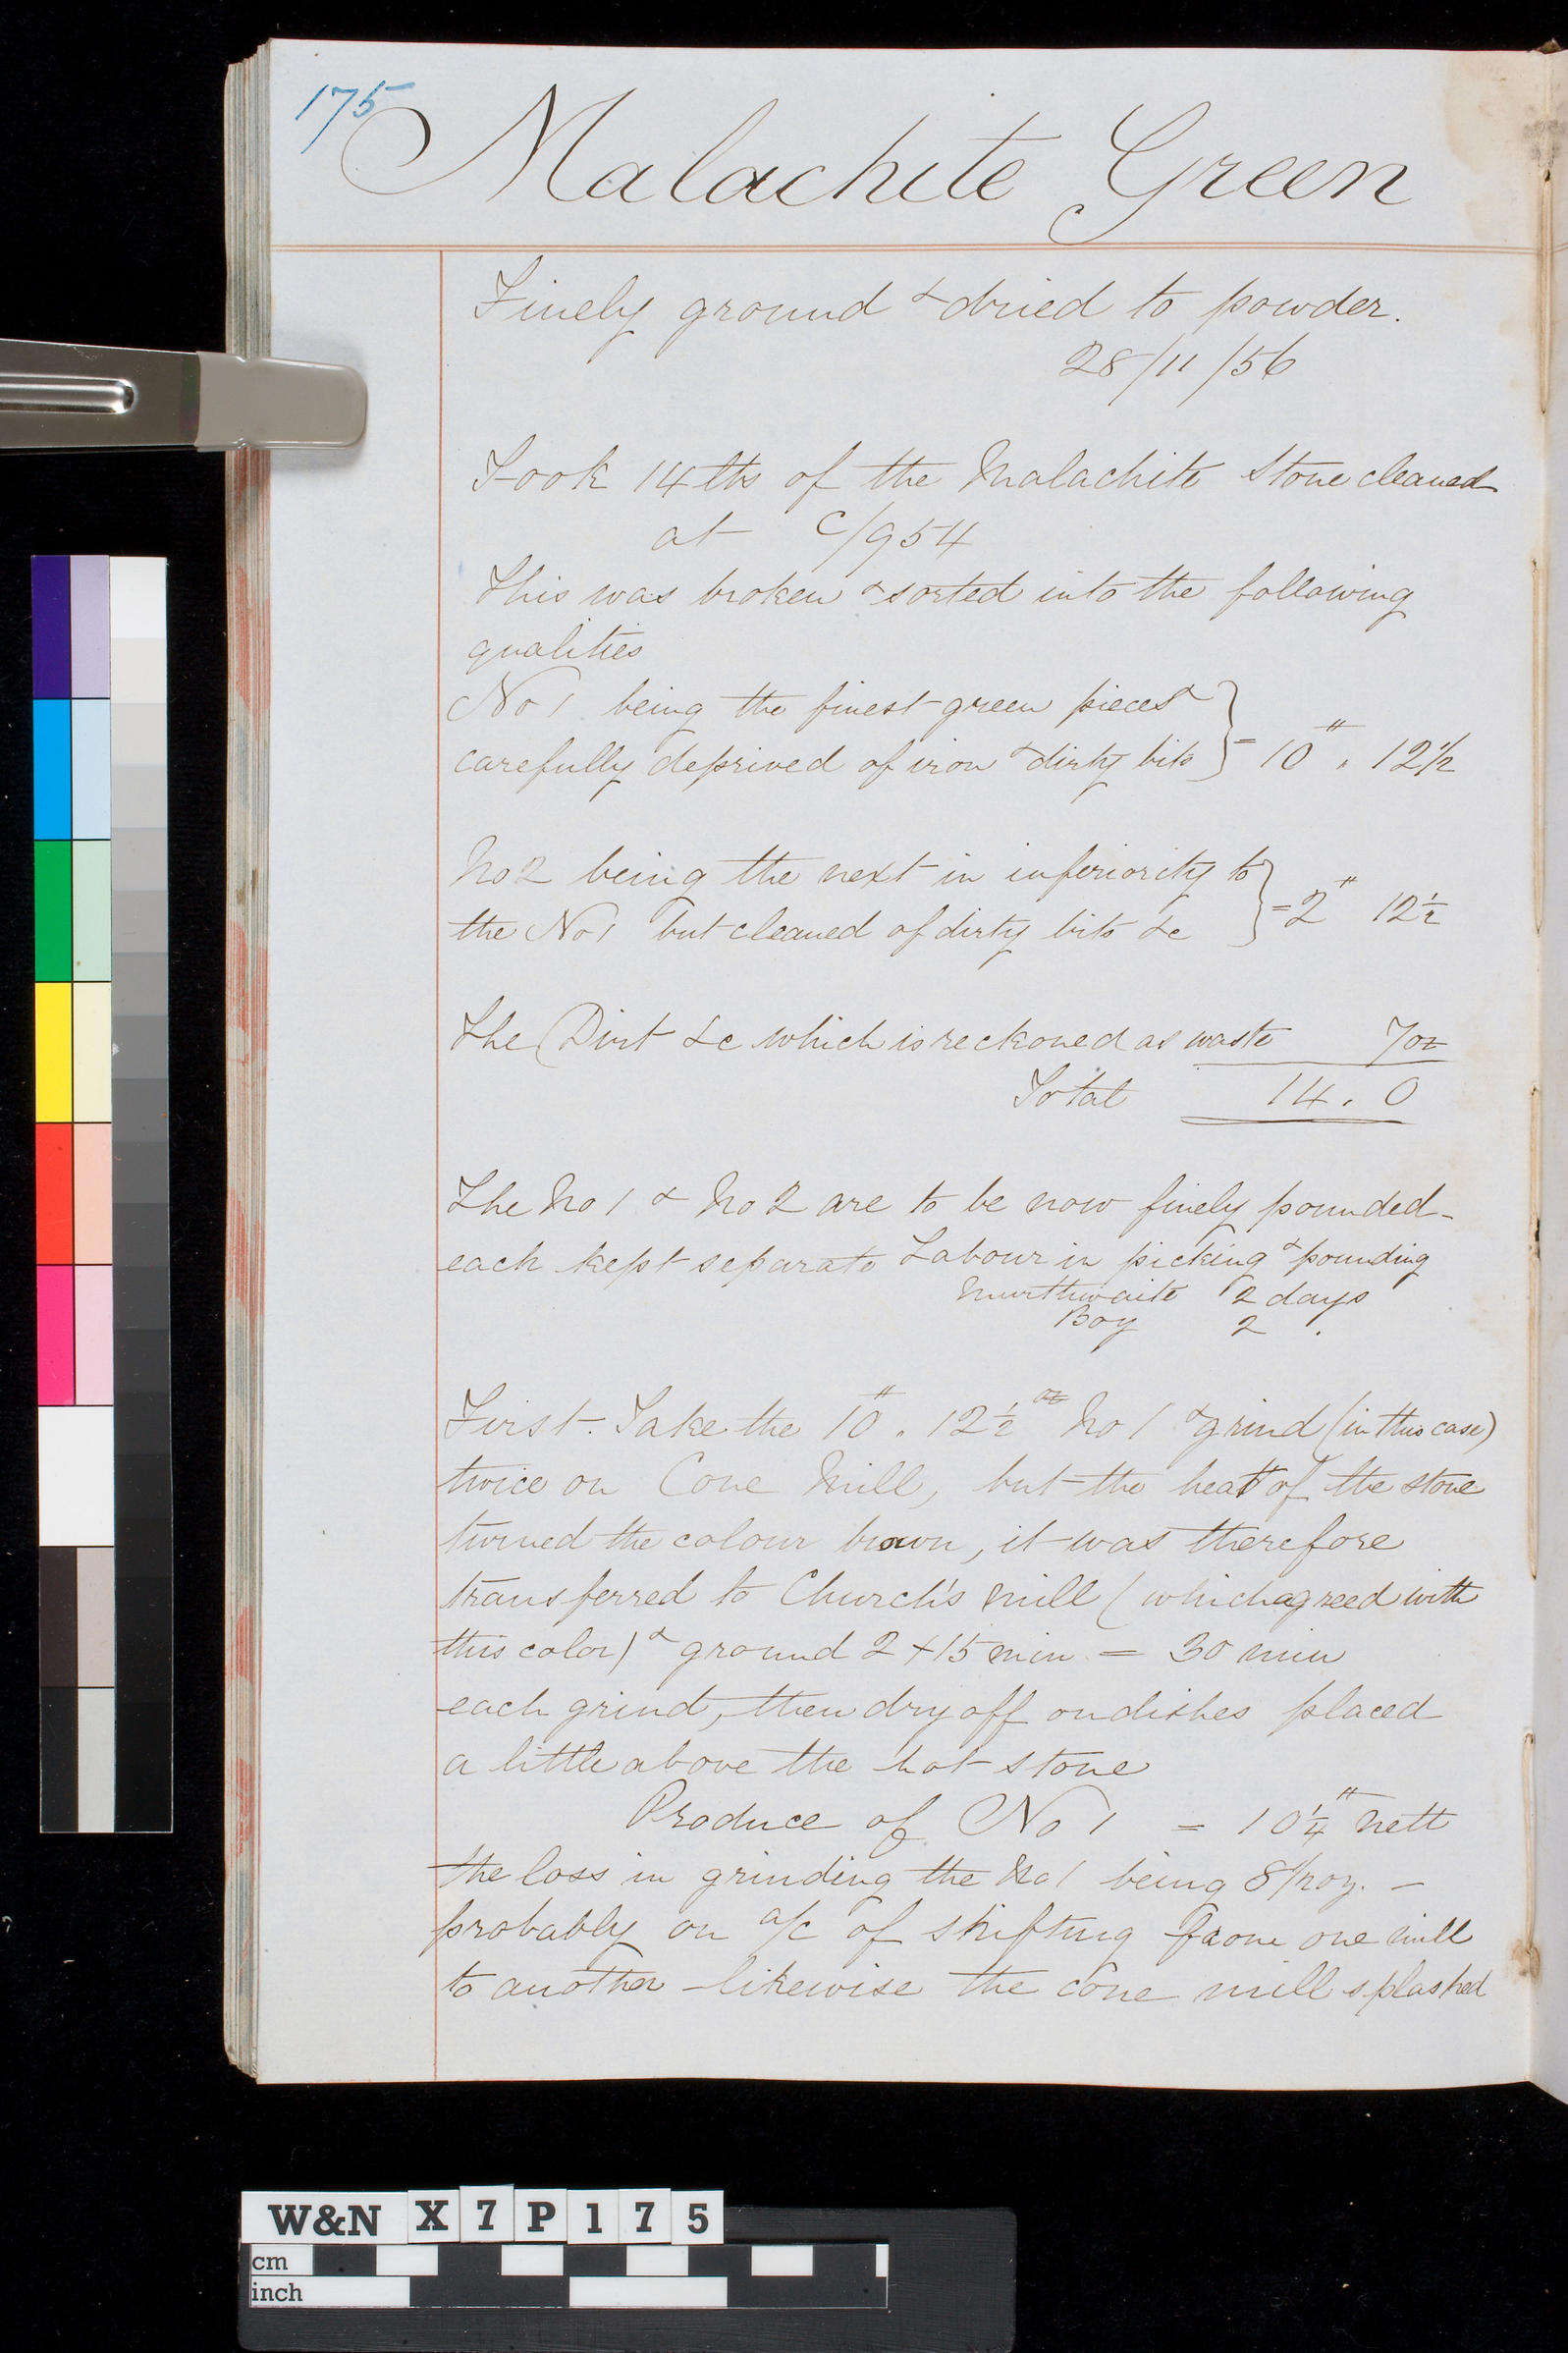 175
Malachite Green
Finely ground & dried to powder.
28/11/56
Took 14 lbs of the Malachite Stone cleaned
at C/954
This was broken & sorted into the following
qualities
No 1 being the finest green pieces &
carefully deprived of iron & dirty bits } = 10 # . 12 1/2
No 2 being the next in inferiority to
the No 1 but cleaned of dirty bits &c } = 2 # 12 1/2
The Dirt &c which is reckoned as waste 7 oz
Total 14 . 0
The No 1 & No 2 are to be now finely pounded
each kept separate Labour in picking & pounding
Murthwaite 2 days
Boy 2 .
First. Take the 10 # . 12 1/2 oz No 1 & grind (in this case)
twice on Cone Mill, but the heat of the stone
turned the colour brown, it was therefore
transferred to Church's Mill (which agreed with
this color) & ground 2 + 15 min = 30 min
each grind, then dry off on dishes placed
a little above the hot stone
Produce of No 1 = 10 1/4 # nett
the loss in grinding the No 1 being 8 1/2 oz. -
probably on a/c of shifting from one mill
to another - likewise the cone mill splashed
W&N X7P175
cm
inch